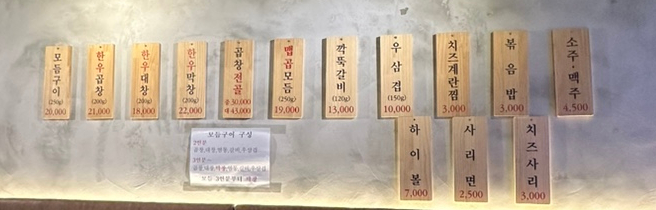 모듬구이
(250g)
20,000
한우곱창
(200g)
21,000
한우대창
(200g)
18,000
한우막창
(200g)
22,000
곱창전골
중 30,000
대 43,000
맵곱모듬
(250g)
19,000
깍뚝갈비
(120g)
13,000
우삼겹
(150g)
10,000
치즈계란찜
3,000
볶음밥
3,000
소주·맥주
4,500
하이볼
7,000
사리면
2,500
치즈사리
3,000
모듬구이 구성
2인분
3인분~
모듬 3인분부터